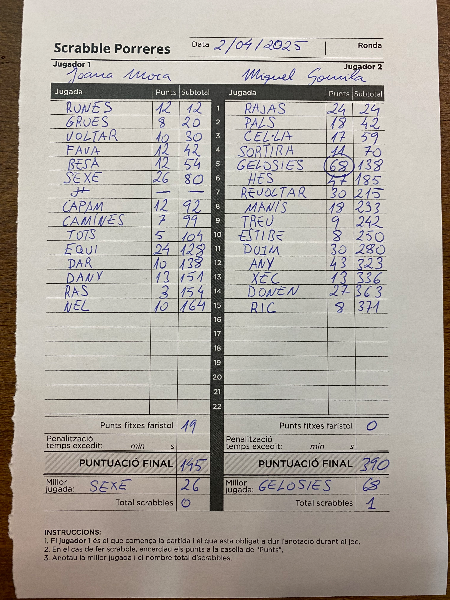 Scrabble Porreres Data 2/04/2025 Ronda
Jugador 1 Jugador 2
Joana Mora Miquel Gomila
Jugada Punts Subtotal Jugada Punts Subtotal
RUNES 12 12 1 RAJAS 24 24
GRUES 8 20 2 PALS 18 42
VOLTAR 10 30 3 CEL·LA 17 59
FAVA 12 42 4 SORTIRA 11 70
BESA 12 54 5 GELOSIES 68 138
SEXE 26 80 6 HES 47 185
— — 7 REVOLTAR 30 215
CAPAM 12 92 8 MANIS 18 233
CAMINES 7 99 9 TREU 9 242
TOTS 5 104 10 ESTIBE 8 250
EQUI 24 128 11 DUIM 30 280
DAR 10 138 12 ANY 43 323
DANY 13 151 13 XEC 13 336
RAS 3 154 14 DONEN 27 363
NEL 10 164 15 RIC 8 371
16
17
18
19
20
21
22
Punts fitxes faristol 19 Punts fitxes faristol 0
Penalització Penalització
temps excedit: min s temps excedit: min s
PUNTUACIÓ FINAL 145 PUNTUACIÓ FINAL 390
Millor Millor
jugada: SEXE 26 jugada: GELOSIES 68
Total scrabbles 0 Total scrabbles 1
INSTRUCCIONS:
1. El jugador 1 és el que comença la partida i el que està obligat a dur l'anotació durant el joc.
2. En el cas de fer scrabble, encerclau els punts a la casella de "Punts".
3. Anotau la millor jugada i el nombre total d'scrabbles.